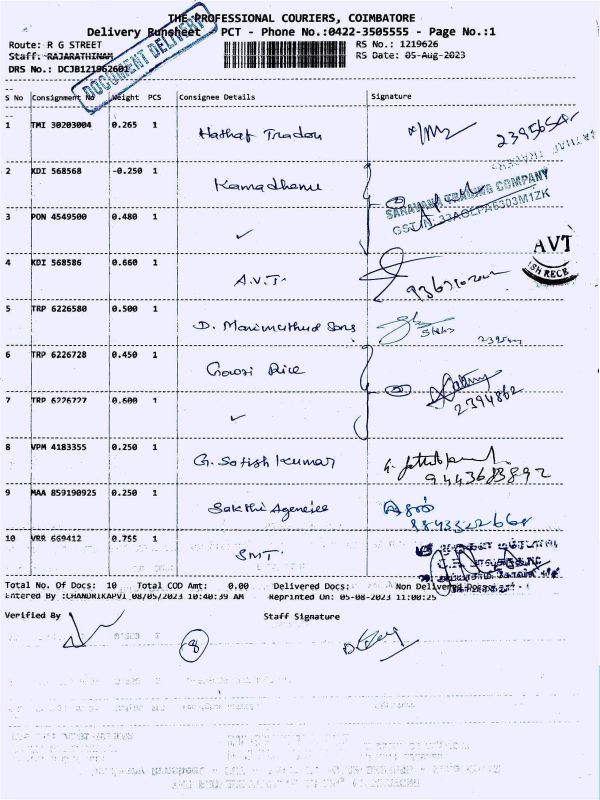 THE PROFESSIONAL COURIERS, COIMBATORE
Delivery Runsheet - PCT - Phone No.:0422-3505555 - Page No.:1
Route: R G STREET RS No.: 1219626
Staff: RAJARATHINAM RS Date: 05-Aug-2023
DRS No.: DCJB121962601
DOCUMENT DELIVERY
S No Consignment No Weight PCS Consignee Details Signature
1 TMI 30203004 0.265 1
2 KDI 568568 -0.250 1 Kamadhenu
SARAVANA TRADING COMPANY
3 PON 4549500 0.480 1 ✓
4 KDI 568586 0.660 1 A.V.T.
AVT
5 TRP 6226580 0.500 1 D. Marimuthu & Sons
6 TRP 6226728 0.450 1 Gowri Rice
7 TRP 6226727 0.600 1 ✓ 2394862
8 VPM 4183355 0.250 1 G. Satish Kumar
9443683892
9 MAA 859190925 0.250 1 Sakthi Agencies
10 VRR 669412 0.755 1 SMT
Total No. Of Docs: 10 Total COD Amt: 0.00 Delivered Docs: Non Delivered
Entered By :CHANDRIKAPVI 08/05/2023 10:40:39 AM Reprinted On: 05-08-2023 11:00:25
Verified By Staff Signature
8